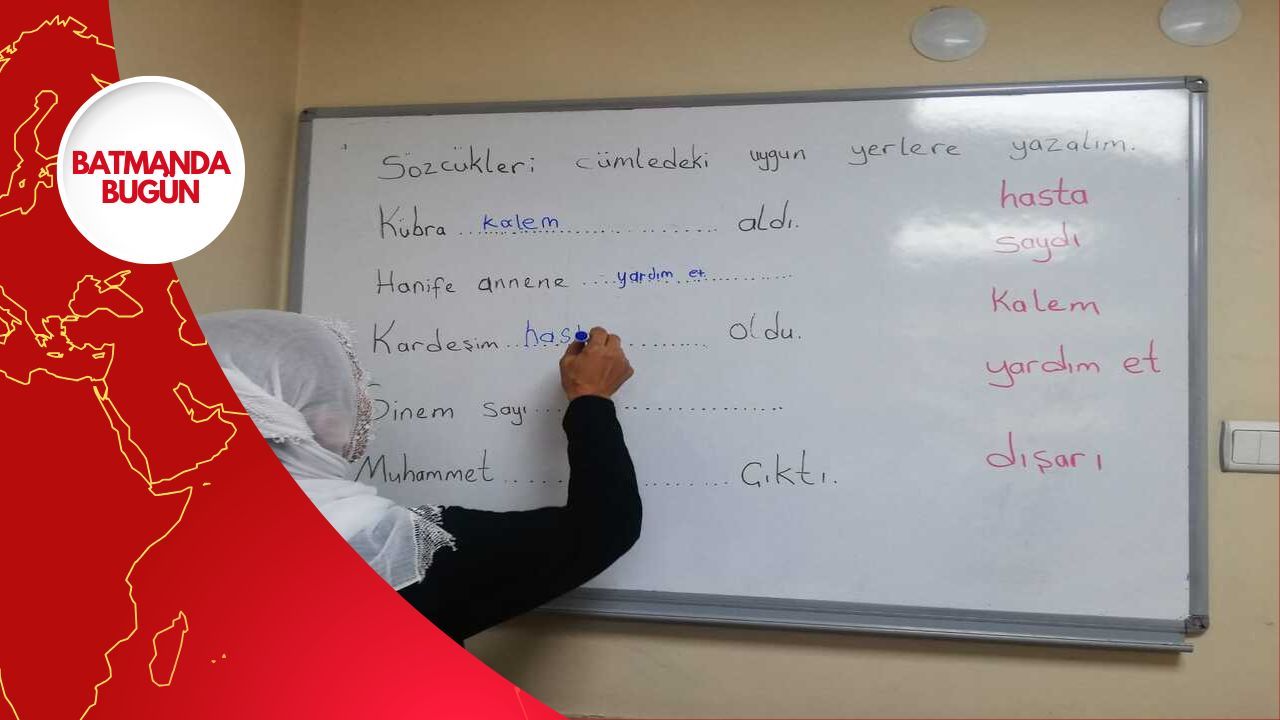 BATMANDA
BUGÜN
Sözcükleri cümledeki uygun yerlere yazalım.
Kübra .. kalem ............ aldı.
Hanife annene .... yardım et ..........
Kardeşim .. hast ......... oldu.
Sinem sayı ......................
Muhammet .................... Çıktı.
hasta
saydı
Kalem
yardım et
dışarı